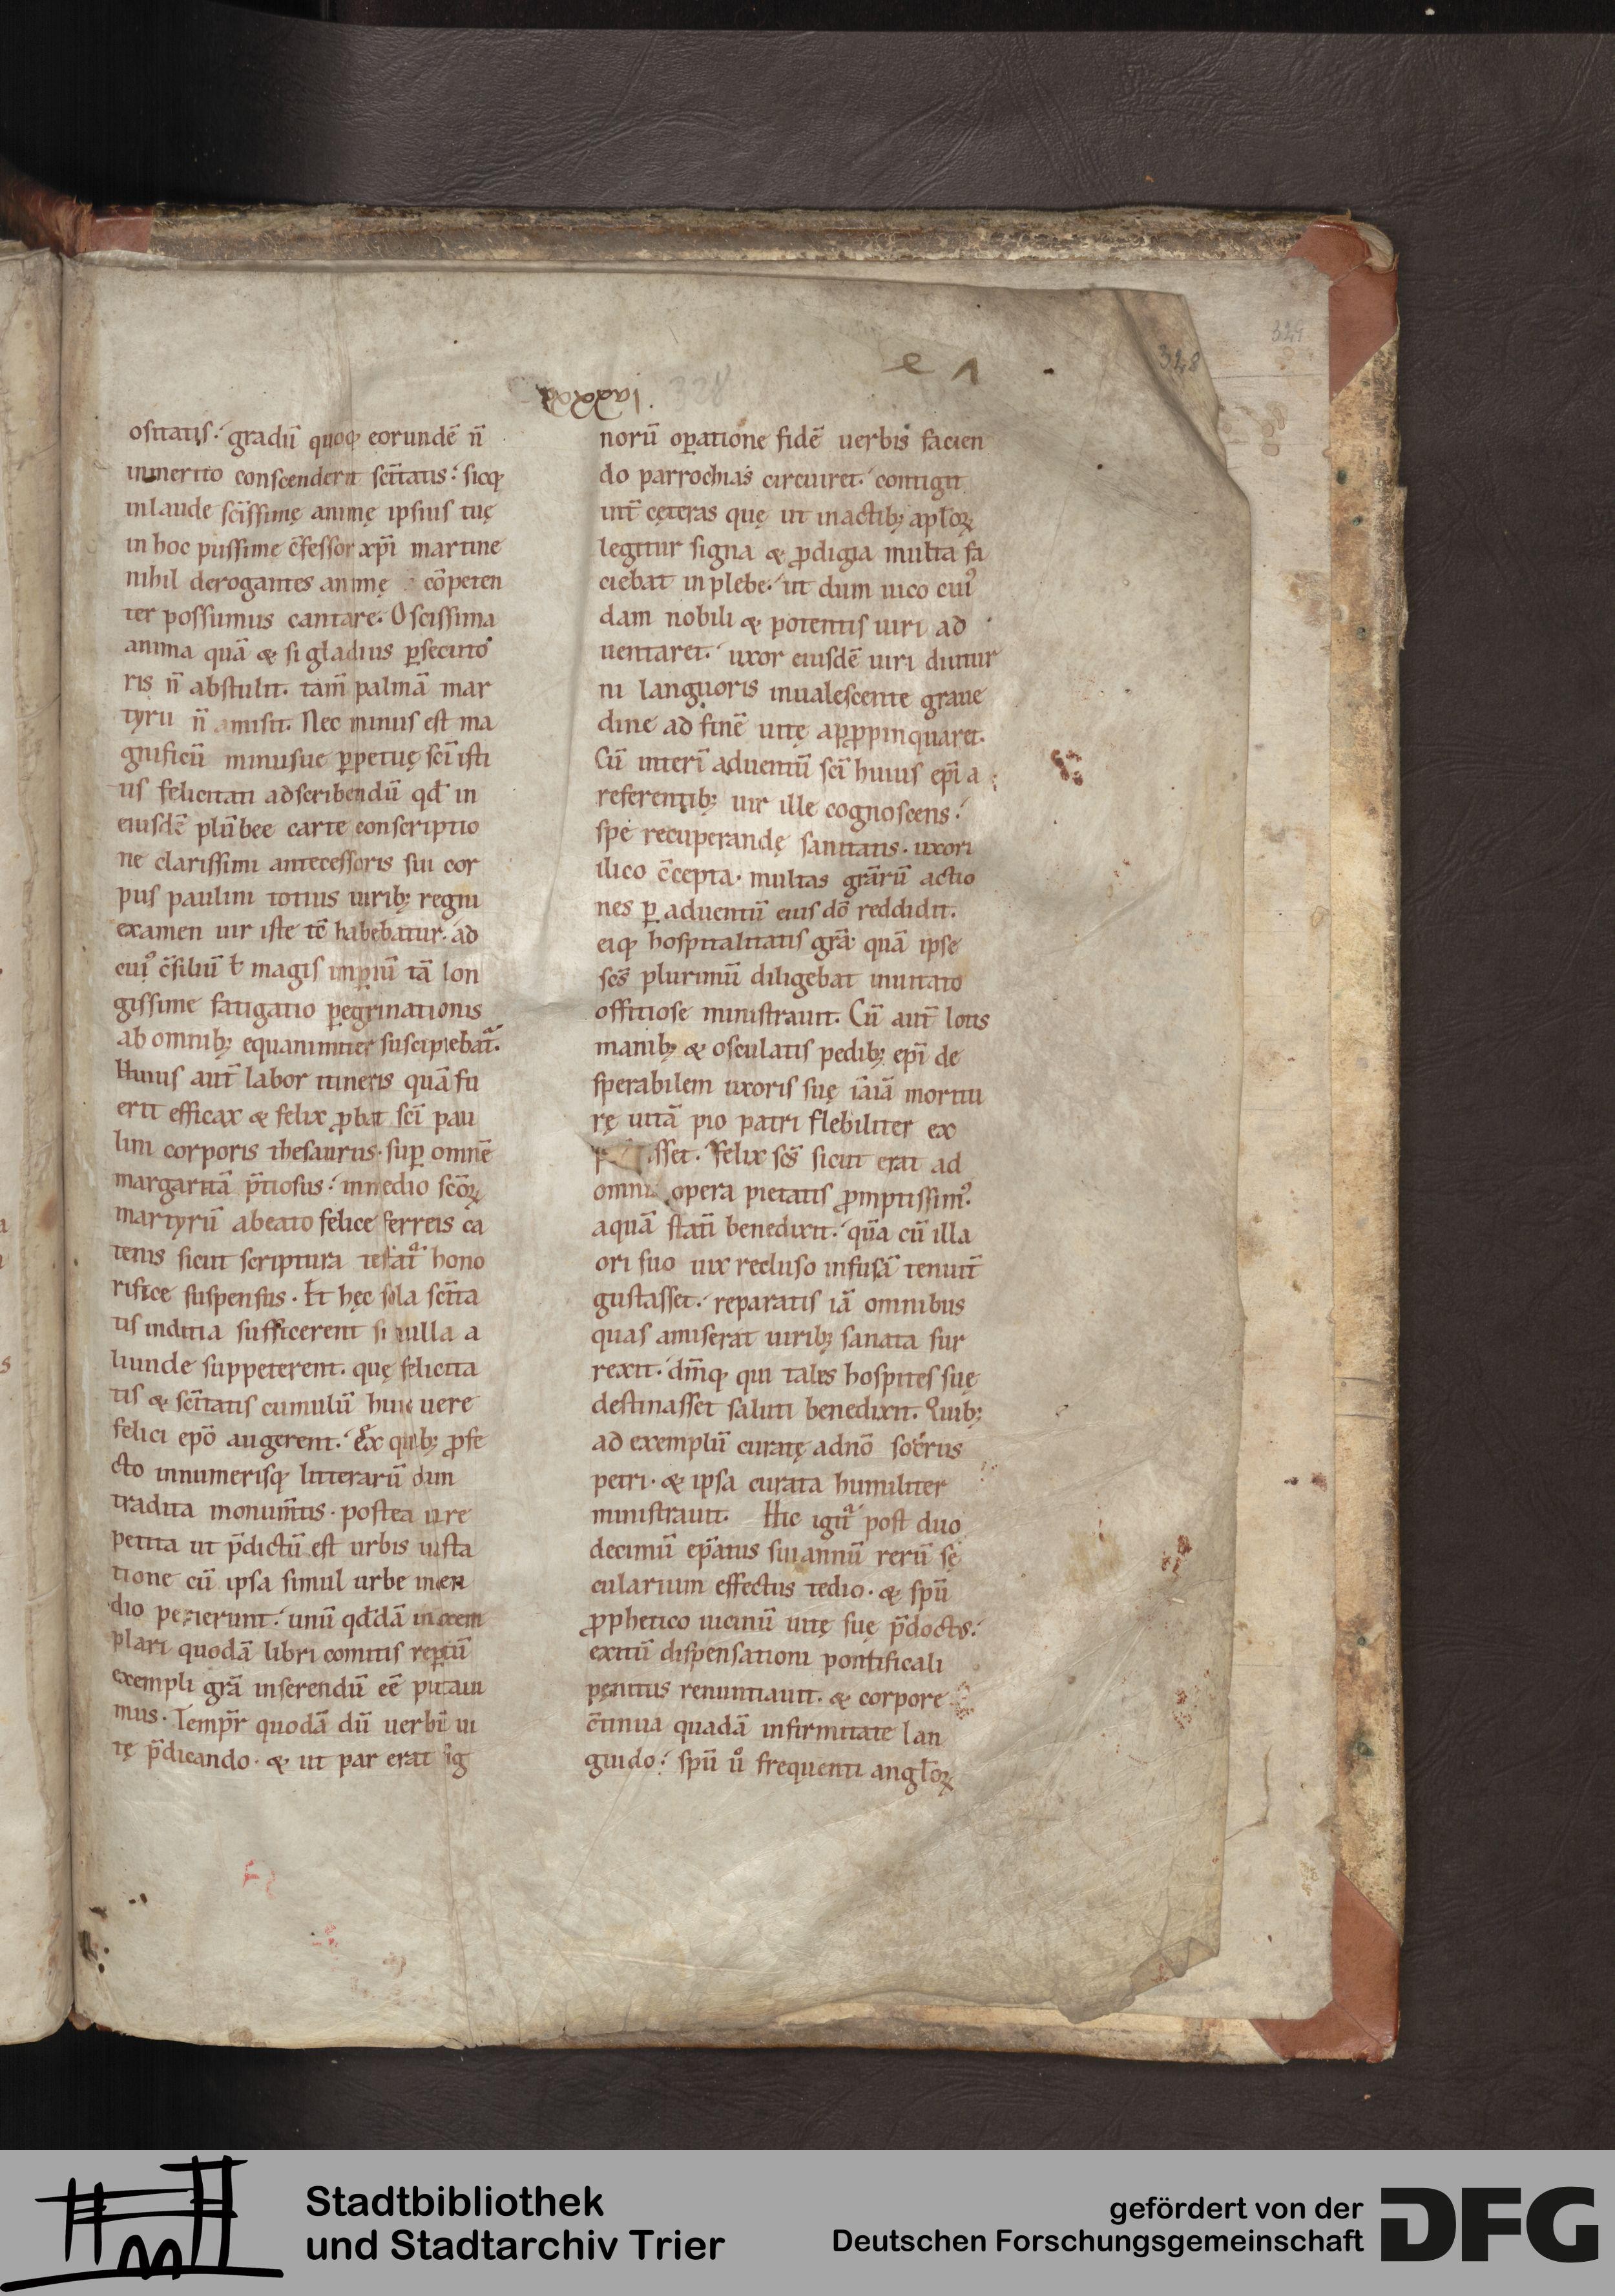 e 1
328
329
328
ositatis. gradū quoq; eorundē n̄
inmerito conscenderit sc̄itatis. sicq;
inlaude sc̄issimę animę ipsius tuę
in hoc piissime c̄fessor xp̄i martine
nihil derogantes animę cōpeten
ter possumus cantare. O scissima
anima quā & si gladius p̱secuto
ris n̄ abstulit. tam̄ palmā mar
tyru n̄ amisit. Nec minus est ma
gnificū minusue p̱petuę sc̄i isti
us felicitati adscribendū qd̄ in
eiusdē plūbee carte conscriptio
ne clarissimi antecessoris sui cor
pus paulini totius uirib; regni
examen uir iste tē habebatur. ad
cui⁹ c̄siliū ł magis imp̱iū tā lon
gissime fatigatio p̱egrinationis
ab omnib; equanimiter suscipiebat̄.
Huius aut̄ labor itineris quā fu
erit efficax & felix ꝓbat sc̄i pau
lini corporis thesaurus. sup̱ omnē
margaritā p̄tiosus. inmedio scōꝝ
martyrū abeato felice ferreis ca
tenis sicut scriptura testat̄ hono
rifice suspensus. Et hęc sola sc̄ita
tis inditia sufficerent si nulla a
liunde suppeterent. quę felicita
tis & sc̄itatis cumulū huic uere
felici ep̄o augerent. Ex quib; ꝓfe
cto innumerisq; litterarū dun
tradita monum̄tis. postea u re
petita ut p̄dictū est urbis uasta
tione cū ipsa simul urbe incen
dio perierunt. unū qd̄dā in exem
plari quodā libri comitis rep̱tū
exempli grā inserendū eē putaui
mus. Temp̱r quodā dū uerbū ui
tę p̄dicando. & ut par erat sig
norū op̱atione fidē uerbis facien
do parrochias circuiret. contigit
int̄ cęteras quę ut inactib; ap̄loꝝ
legitur signa & ꝓdigia multa fa
ciebat in plebe. ut dum uico cui⁹
dam nobili & potentis uiri ad
uentaret. uxor eiusdē uiri diutur
ni languoris inualescente graue
dine ad finē uitę apꝓpinquaret.
Cū interī aduentū sc̄i huius ep̄i a
referentib; uir ille cognoscens.
spe recuperandę sanitatis. uxori
ilico c̄cepta. multas grārū actio
nes p̱ aduentū eius dō reddidit.
eiq; hospitalitatis grā quā ipse
sc̄s plurimū diligebat inuitato
offitiose ministrauit. Cū aut̄ lotis
manib; & osculatis pedib; ep̄i de
sperabilem uxoris suę iāiā moritu
rę uitā pio patri flebiliter ex
Felix sc̄s sicut erat ad
omnia opera pietatis ꝓmptissim⁹.
aquā statī benedixit. quā cū illa
ori suo uix recluso infusā tenuit̄
gustasset. reparatis iā omnibus
quas amiserat uirib; sanata sur
rexit. dm̄q; qui tales hospites suę
destinasset saluti benedixit. Quib;
ad exemplū curatę adnō socrus
petri. & ipsa curata humiliter
ministrauit. Hic igit̄ post duo
decimū ep̄atus sui annū rerū sę
cularium effectus tedio. & spū
ꝓphetico uicinū uitę suę p̄doctus.
exitū dispensationi pontificali
penitus renuntiauit. & corpore
c̄tinua quadā infirmitate lan
guido. spū u̇ frequenti angl̄oꝝ
Stadtbibliothek
und Stadtarchiv Trier
gefördert von der
Deutschen Forschungsgemeinschaft
DFG